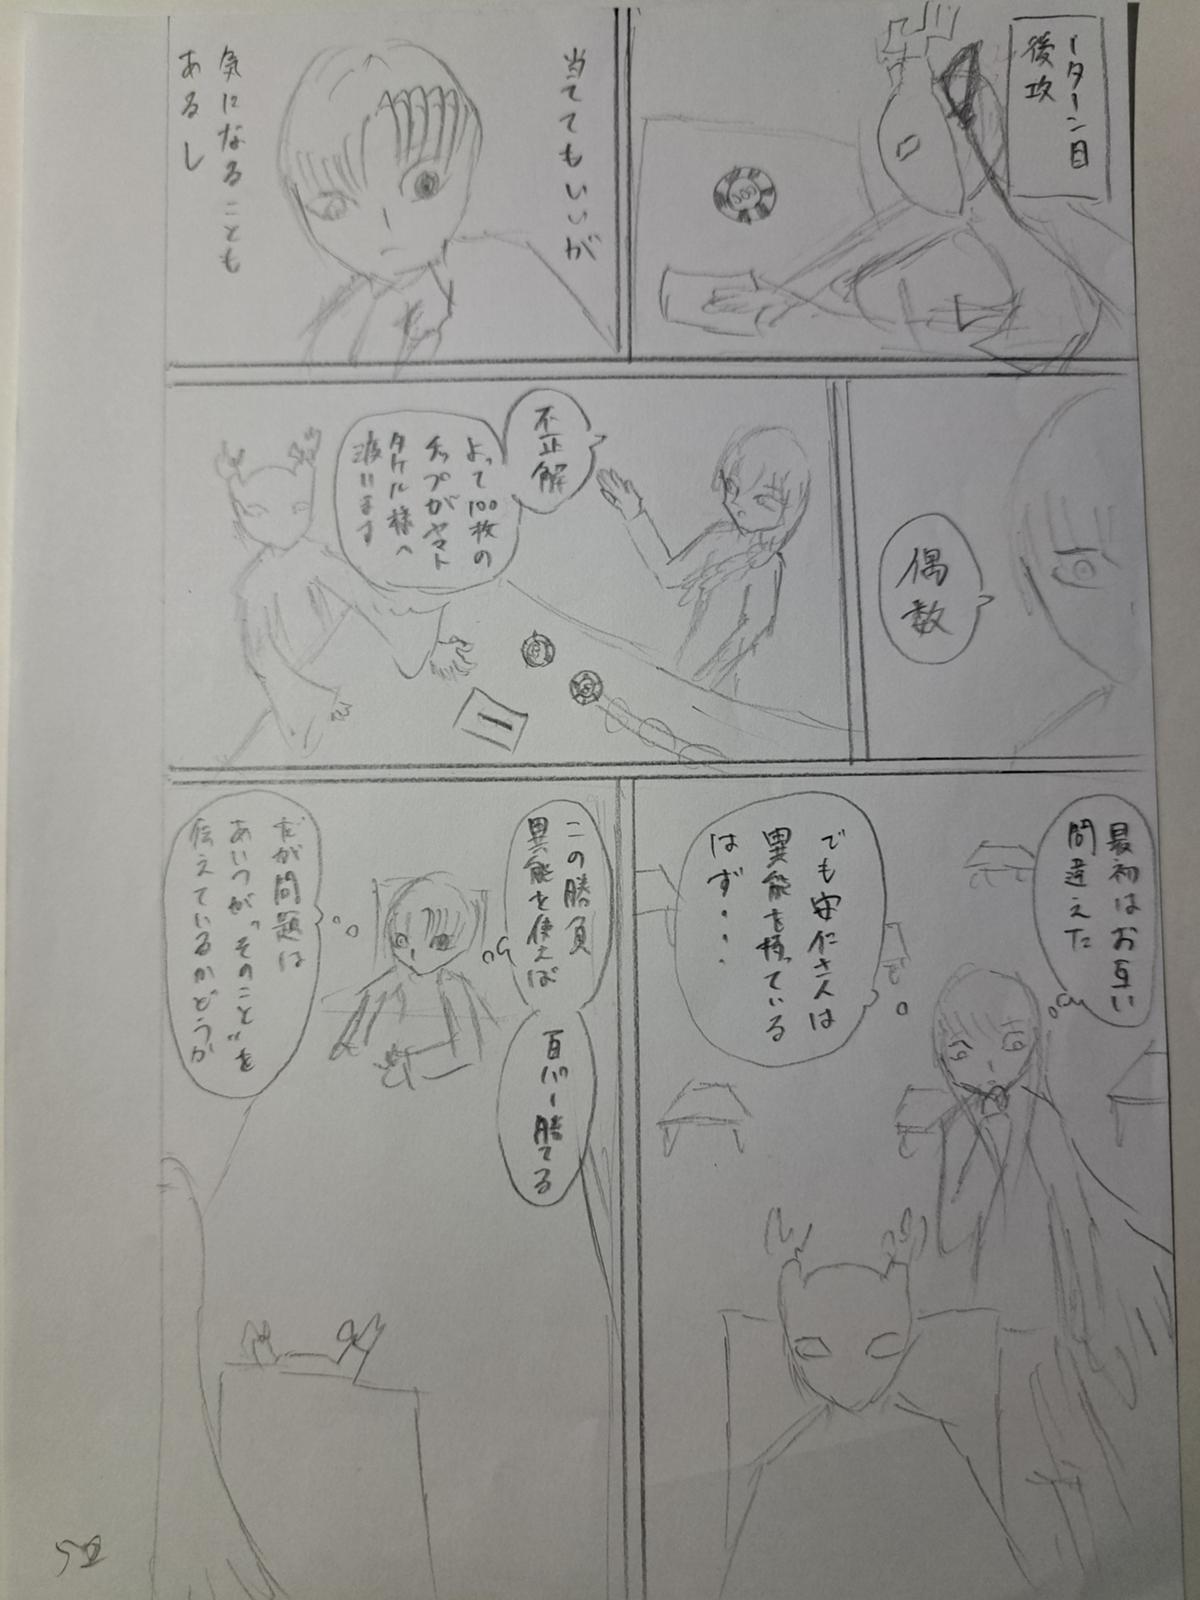 1ターン目
後攻
当ててもいいが
気になることも
あるし
偶数
不正解
よって100枚の
チップがヤマト
タケル様へ
渡ります
最初はお互い
間違えた
でも安仁さんは
異能を持っている
はず・・・
この勝負
異能を使えば
百パー勝てる
だが問題は
あいつが"そのこと"を
伝えているかどうか